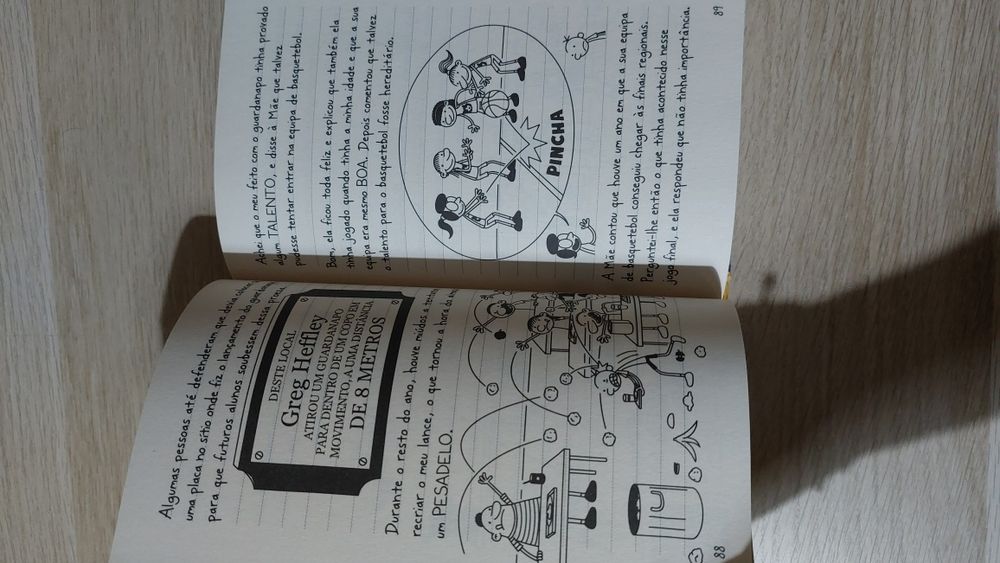 Algumas pessoas até defenderam que devia
uma placa no sítio onde fiz o lançamento do
para que futuros alunos soubessem dessa
DESTE LOCAL
Greg Heffley
ATIROU UM GUARDANAPO
PARA DENTRO DE UM COPO EM
MOVIMENTO, A UMA DISTÂNCIA
DE 8 METROS
Durante o resto do ano, houve miúdos a
recriar o meu lance, o que tornou a hora do
um PESADELO.
88
Achei que o meu feito com o guardanapo tinha provado
algum TALENTO, e disse à Mãe que talvez
pudesse tentar entrar na equipa de basquetebol.
Bom, ela ficou toda feliz e explicou que também ela
tinha jogado quando tinha a minha idade e que a sua
equipa era mesmo BOA. Depois comentou que talvez
o talento para o basquetebol fosse hereditário.
PINCHA
A Mãe contou que houve um ano em que a sua equipa
de basquetebol conseguiu chegar às finais regionais.
Perguntei-lhe então o que tinha acontecido nesse
jogo final, e ela respondeu que não tinha importância.
89